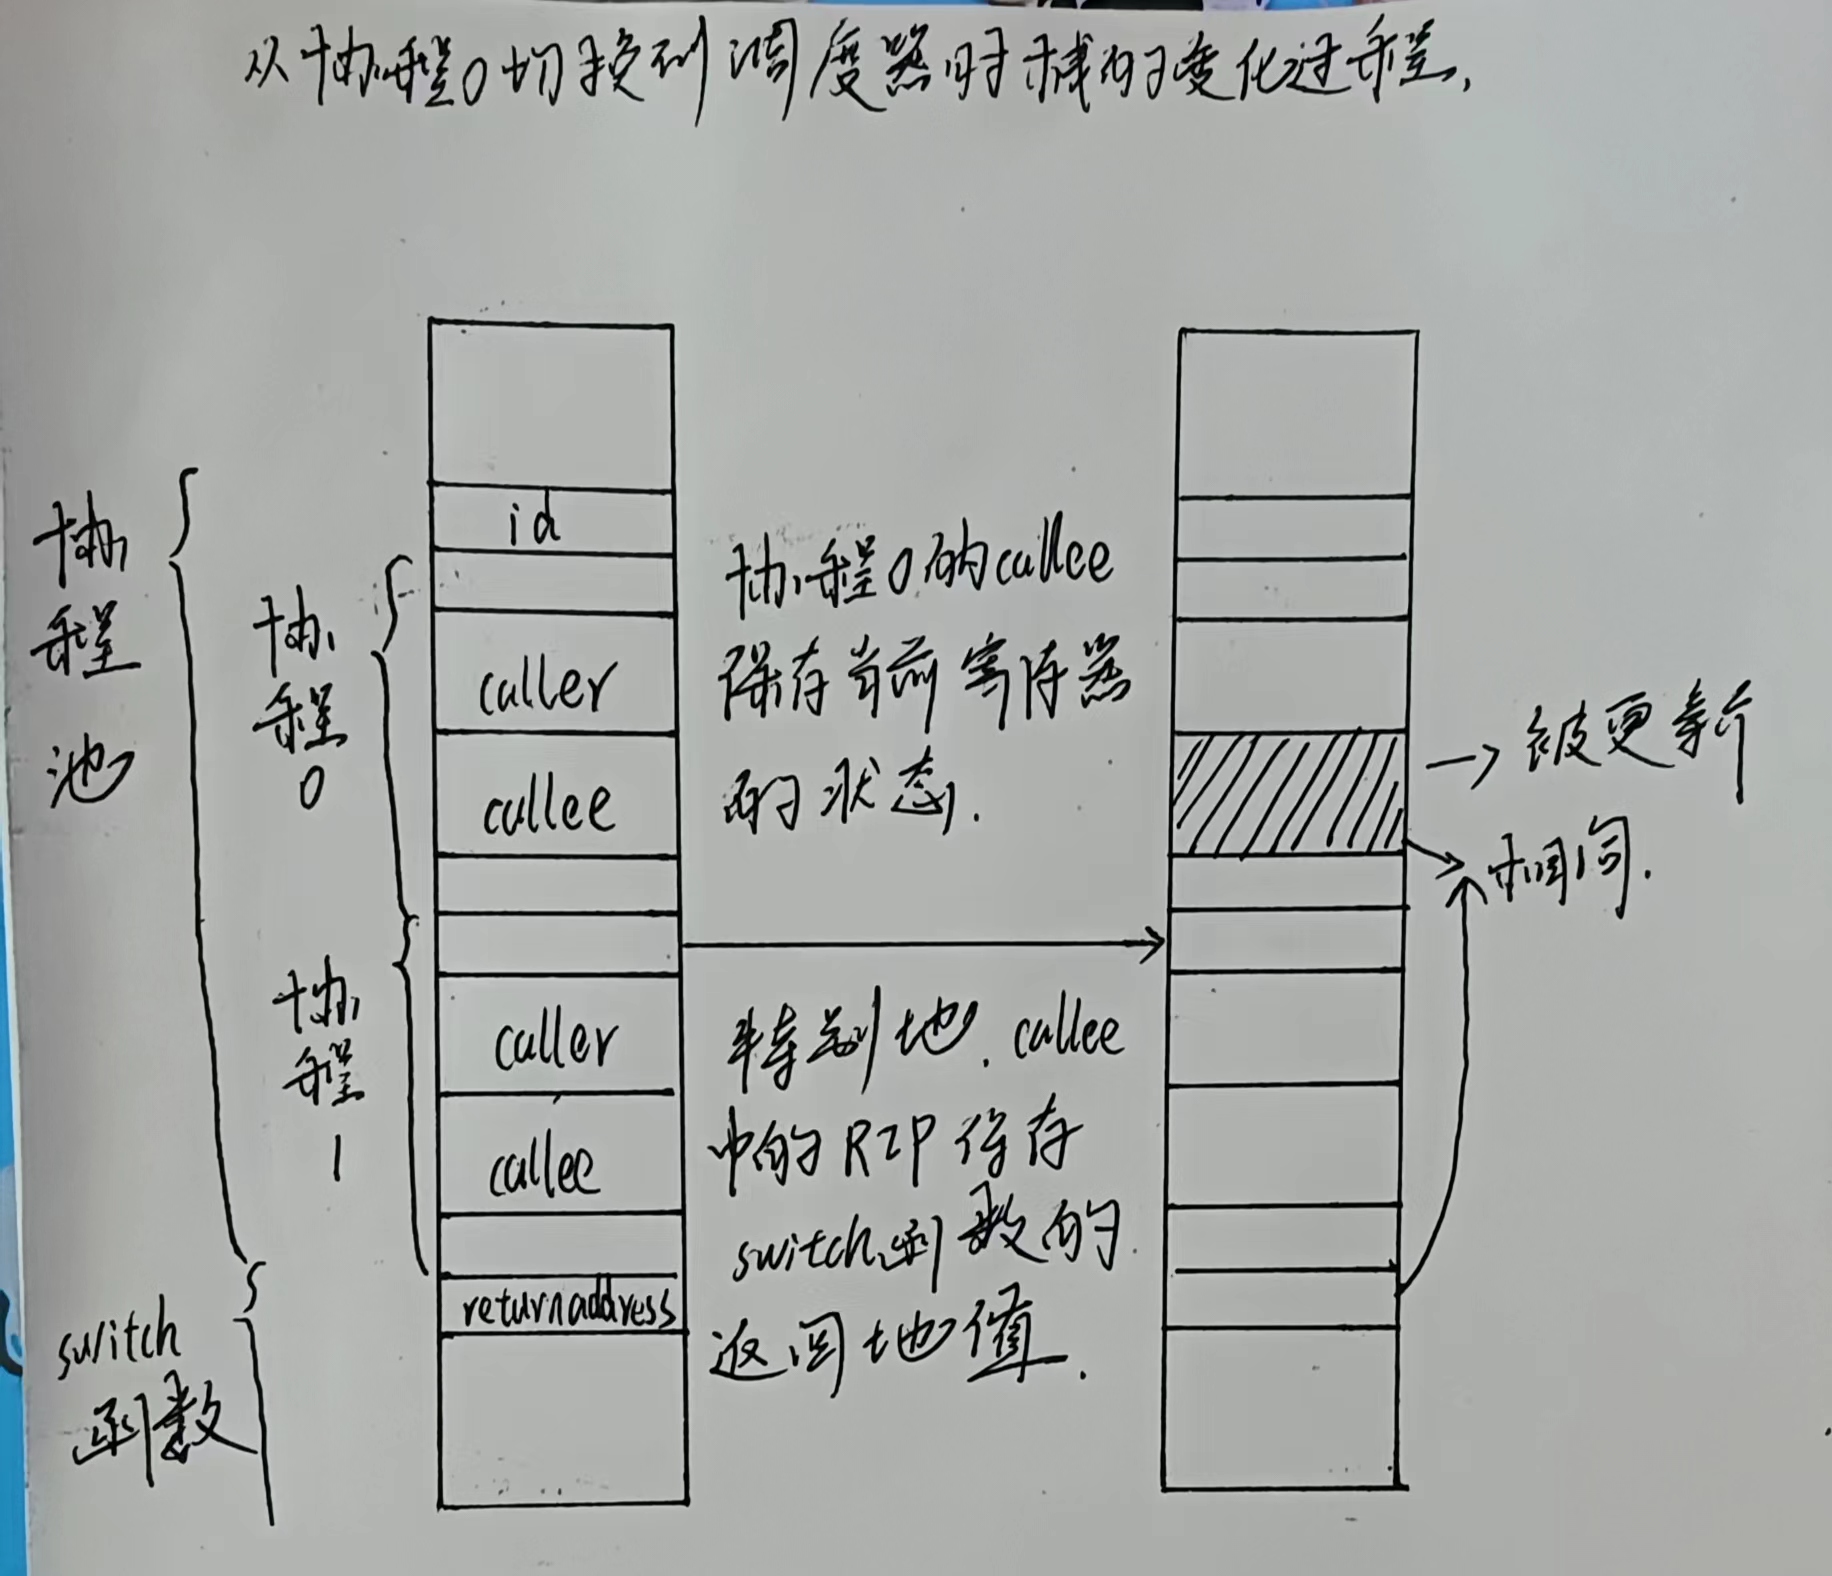 从协程0切换到调度器时栈的变化过程,
协程池
协程0
协程1
switch
函数
id
caller
callee
caller
callee
returnaddress
协程0的callee
保存当前寄存器
的状态.
特别地.callee
中的RIP保存
switch函数的
返回地值.
→被更新
相同.